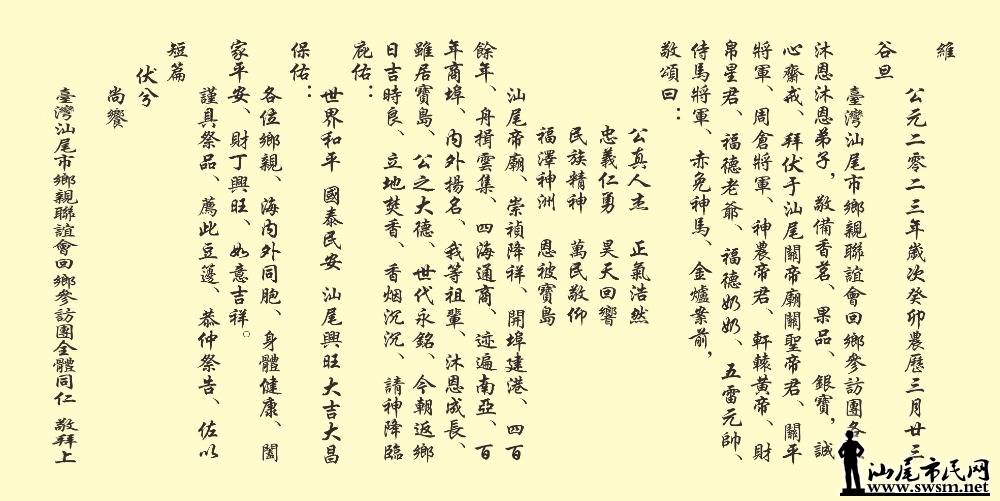 維
公元二零二三年歲次癸卯農歷三月廿三
谷旦
臺灣汕尾市鄉親聯誼會回鄉參訪團各
沐恩沐恩弟子，敬備香茗、果品、銀寶，誠
心齋戒、拜伏于汕尾關帝廟關聖帝君、關平
將軍、周倉將軍、神農帝君、軒轅黃帝、財
帛星君、福德老爺、福德奶奶、五雷元帥、
侍馬將軍、赤免神馬、金爐案前，
敬頌曰：
公真人杰 正氣浩然
忠義仁勇 昊天回響
民族精神 萬民敬仰
福澤神洲 恩被寶島
汕尾帝廟、崇禎降祥、開埠建港、四百
餘年、舟揖雲集、四海通商、迹遍南亞、百
年商埠、內外揚名、我等祖輩、沐恩成長、
雖居寶島、公之大德、世代永銘、今朝返鄉
日吉時良、立地焚香、香烟沉沉、請神降臨
庇佑：
世界和平 國泰民安 汕尾興旺 大吉大昌
保佑：
各位鄉親、海內外同胞、身體健康、闔
家平安、財丁興旺、如意吉祥。
謹具祭品、薦此豆籩、恭伸祭告、佐以
短篇
伏兮
尚饗
臺灣汕尾市鄉親聯誼會回鄉參訪團全體同仁 敬拜上
汕尾市民网
www.swsm.net